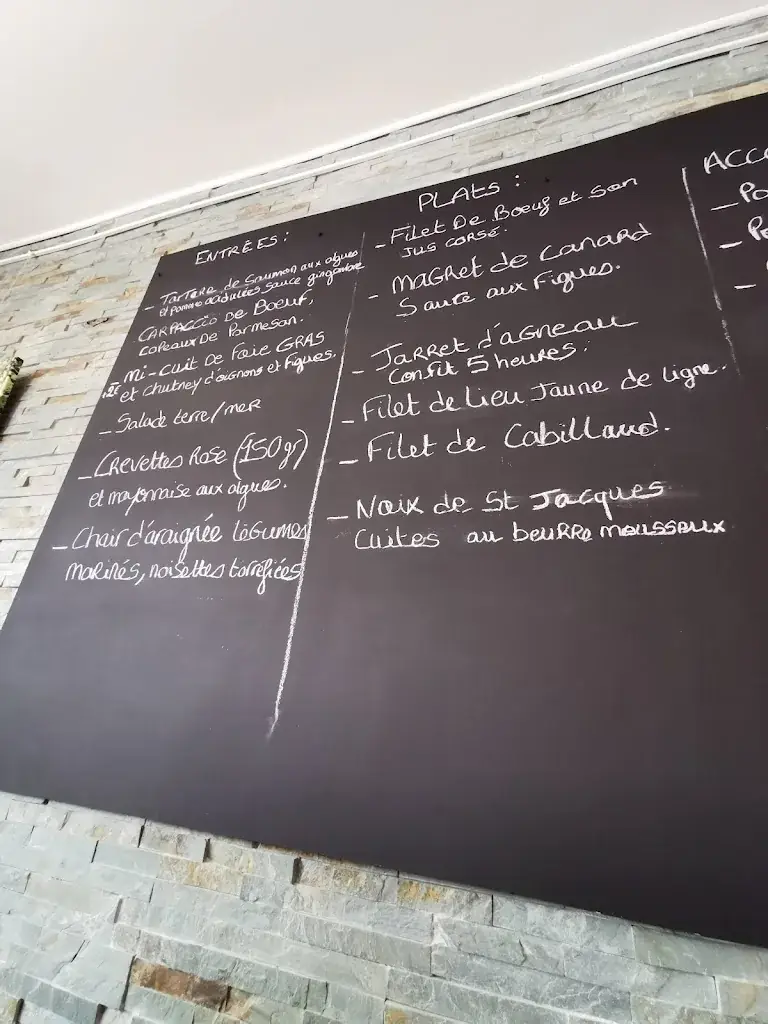 ENTRÉES :
- Tartare de Saumon aux algues
et pommes acidulées sauce gingembre
CARPACCIO DE BOEUF,
copeaux De Parmesan.
- Mi-cuit De Foie GRAS
+2€ et chutney d'oignons et Figues.
- Salade terre/mer
- Crevettes Rose (150gr)
et mayonnaise aux algues.
- Chair d'araignée légumes
marinés, noisettes torréfiées
PLATS :
- Filet De Boeuf et son
Jus corsé.
- Magret de Canard
Sauce aux Figues.
- Jarret d'agneau
Confit 5 heures.
- Filet de Lieu Jaune de ligne.
- Filet de Cabillaud.
- Noix de St Jacques
Cuites au beurre mousseux
ACCO
- Po
- Po
-